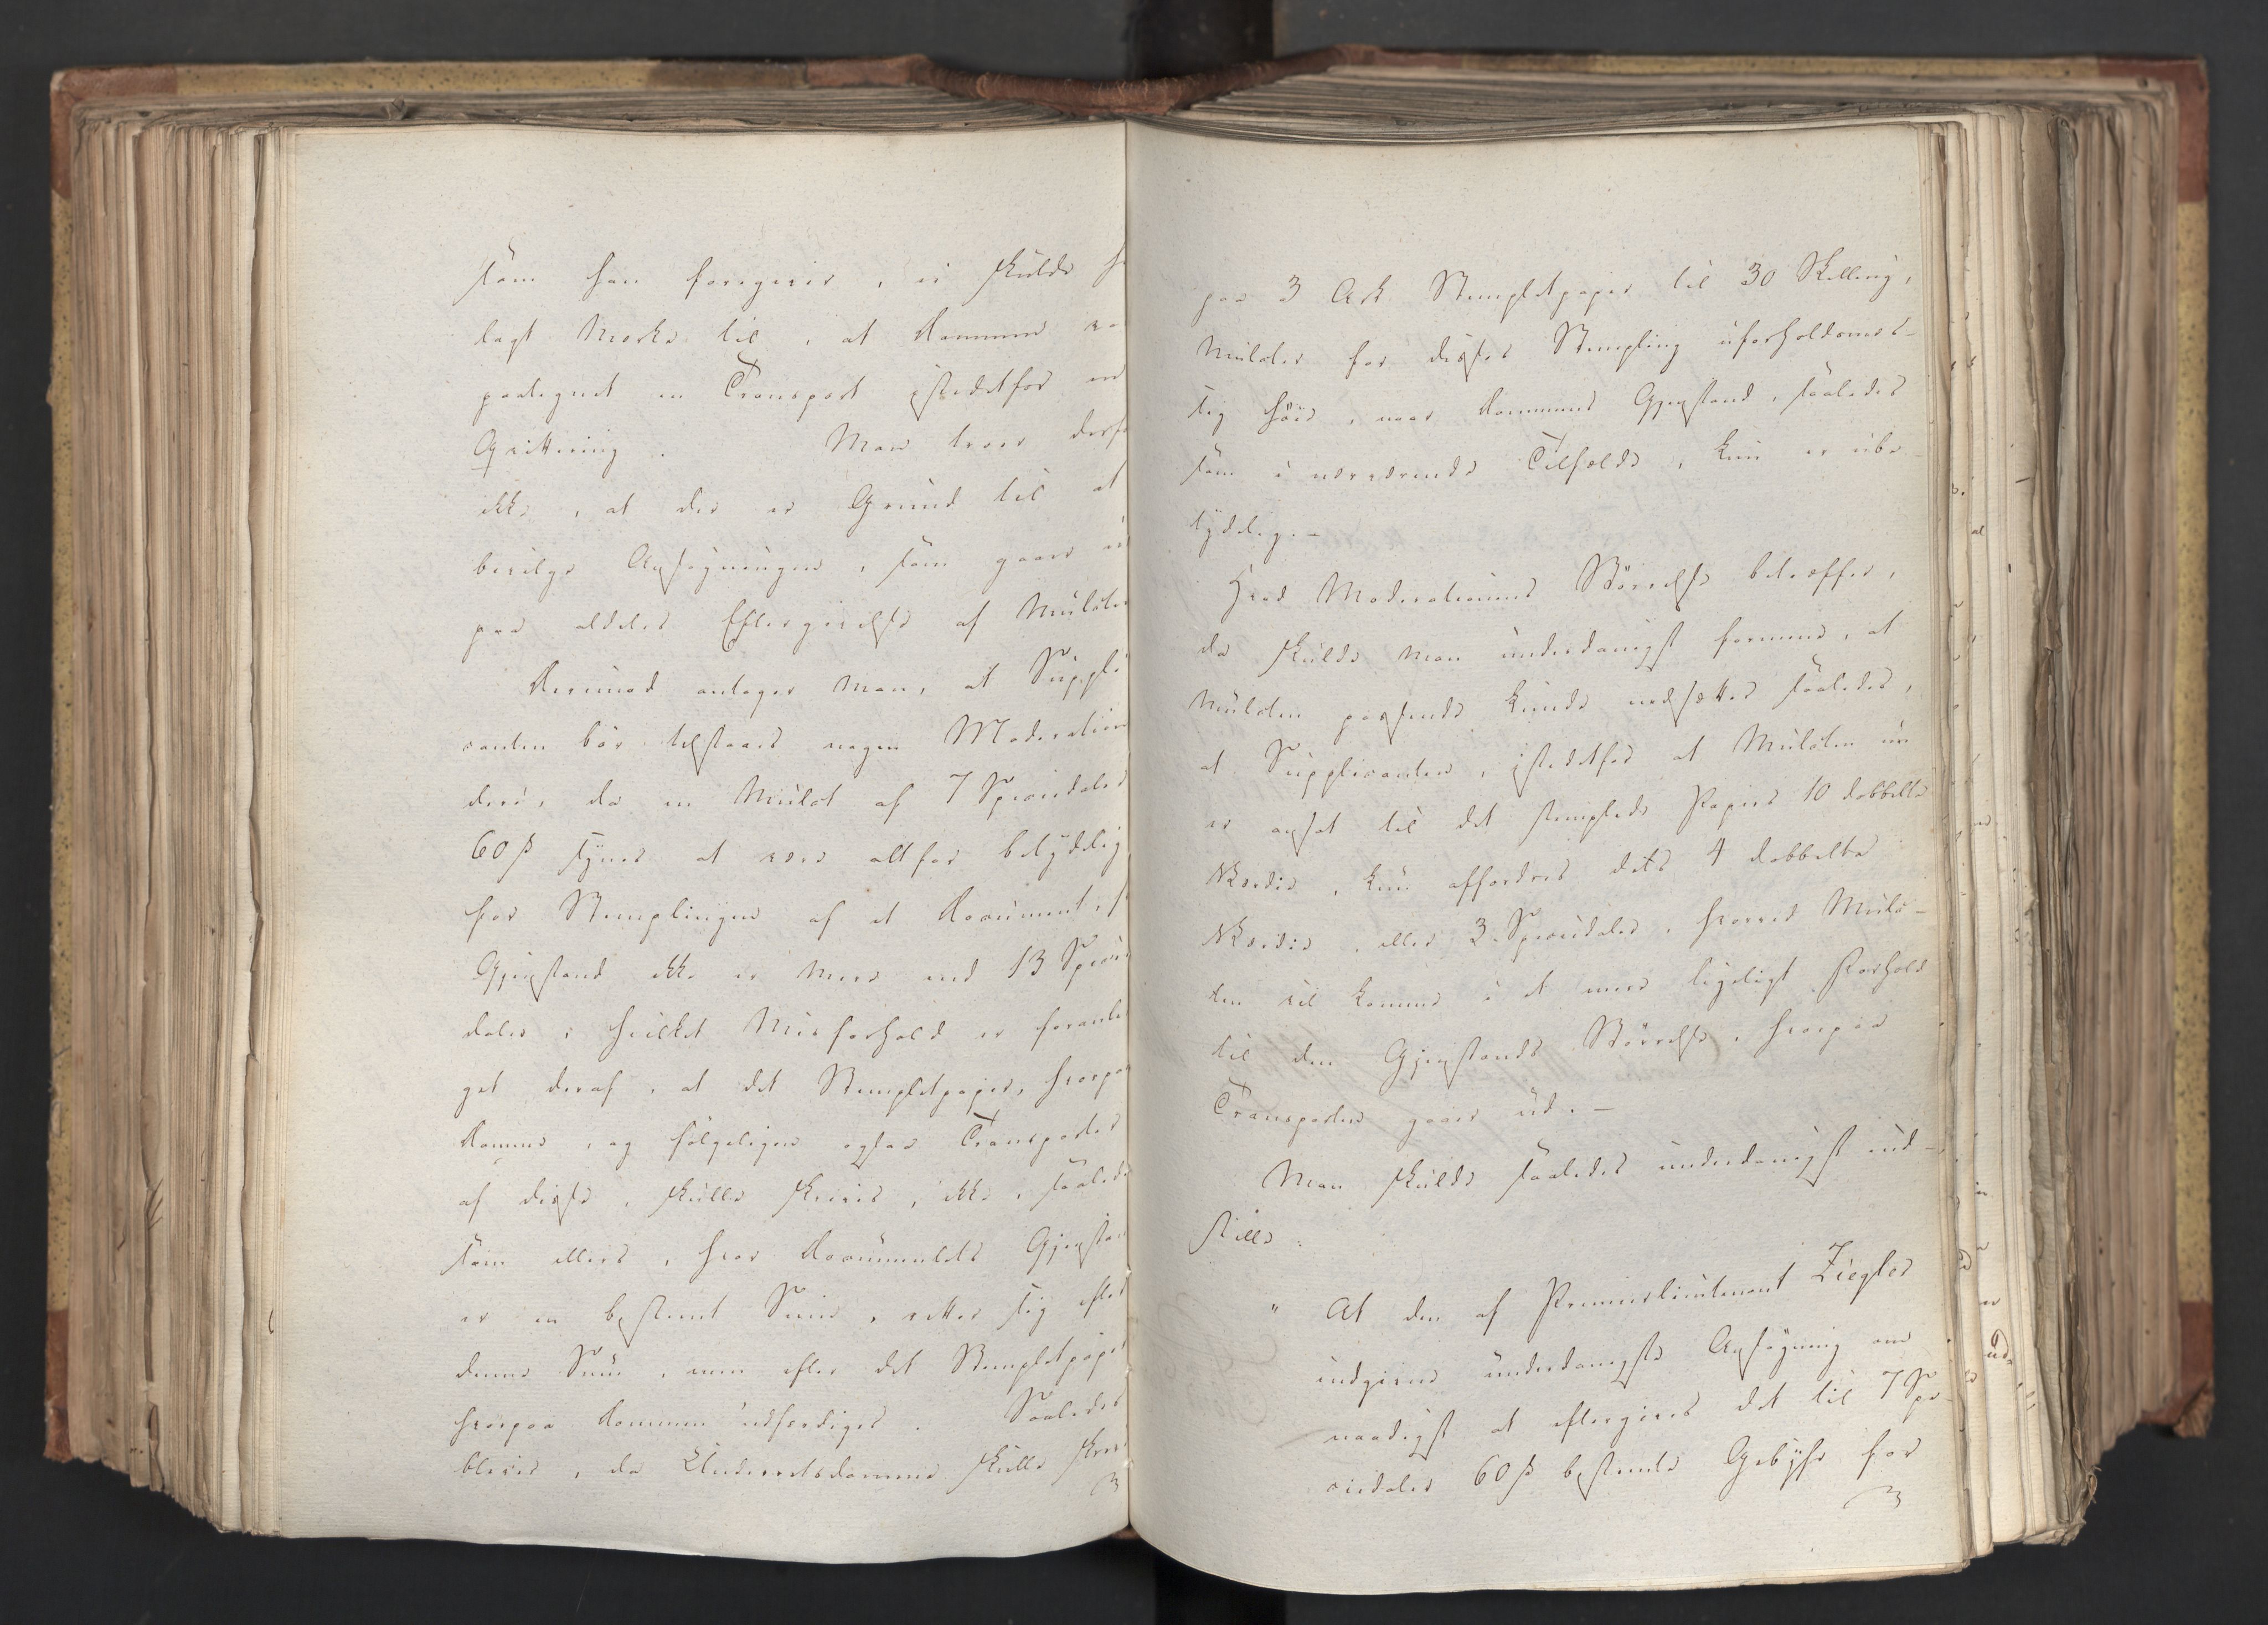 som han foregiver, ei skulde h
lagt Mærke til, at Dommen va
paategnet en Transport istedetfor en
Qvittering. Man troer derfo
ikke, at der er Grund til at
bevilge Ansøgningen, som gaaer ud
paa aldeles Eftergivelse af Mulcte
Derimod antager man, at Suppli
canten bør tilstaaes nogen Moderation
deri, da en Mulct af 7 Speciedaler
60 ß synes at være altfor betydelig
for Stemplingen af et Document, h
Gjenstand ikke er mere end 13 Specie
daler; hvilket Misforhold er foranle
get deraf, at det Stempletpapir, hvorpaa
Domme, og følgeligen ogsaa Transporter
af disse, skulle skrives, ikke, saalede
som ellers, hvor Documentets Gjenstan
er en bestemt Sum, retter sig efter
denne Sum, men efter det Stempletpapir
hvorpaa Dommen udfærdiges. Saaledes
bliver, da Underretsdomme skulle skrive
paa 3 Ark Stempletpapir til 30 Skilling,
Mulcter for disses Stempling uforholdsmæs-
sig høie, naar Dommens Gjenstand, saaledes
som i nærværende Tilfælde, kun er ube-
tydelig.-
Hvad Moderationens Størrelse betræffer,
da skulde man underdanigst formene, at
Mulcten passende kunde nedsættes saaledes,
at Supplicanten, istedetfor at Mulcten nu
er ansat til det stemplede Papirs 10 dobbelte
Værdie, kun affordres dets 4 dobbelte
Værdie, eller 3 Speciedaler, hvorved Mulc-
ten vil komme i et mere ligeligt Forhold
til den Gjenstands Størrelse, hvorpaa
Transporten gaaer ud.-
Man skulde saaledes underdanigst ind-
stille:
" At den af Premierlieutenant Ziegler
indgivne underdanigste Ansøgning om
naadigst at eftergives det til 7 Spe-
ciedaler 60 ß bestemte Gebyhr for